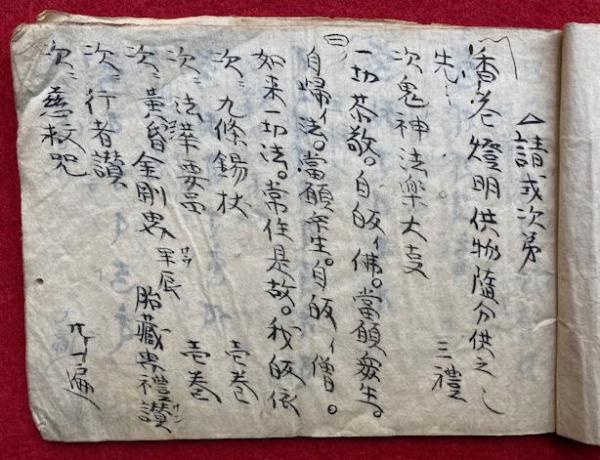 △請或次第
香花燈明供物隨分供之
先ニ 三禮
次鬼神法樂大
㊂一切恭敬。自皈イ佛。當願衆生。
自歸イ法。當願衆生。自皈イ僧。
如来一切法。常住是故。我皈依
次ニ九條錫杖 壱巻
次ニ法華要品 壱巻
次ニ黄昏金剛界 早辰 胎藏界禮讃
次ニ行者讃
次ニ慈救咒 遍